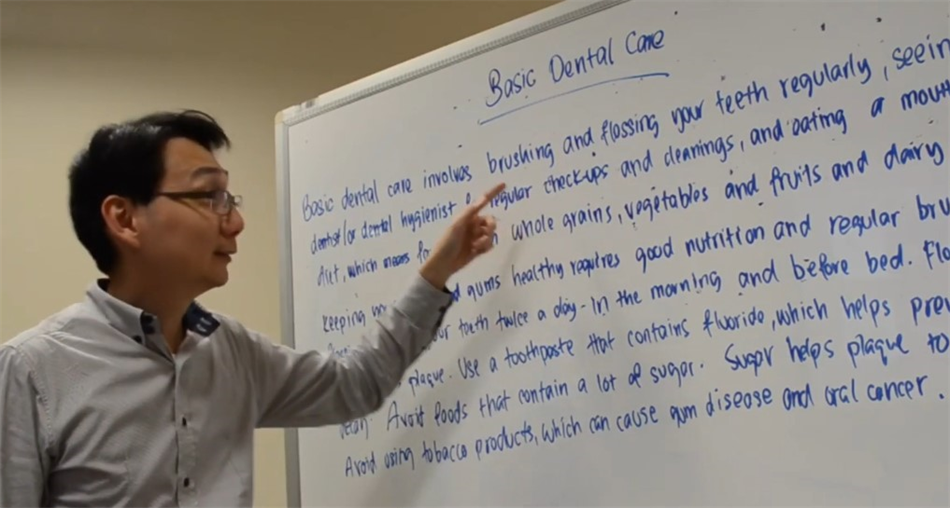 Basic Dental Care
Basic dental care involves brushing and flossing your teeth regularly, seein
dentist/or dental hygienist regular checkups and cleanings, and eating a mouth
diet, which means whole grains, vegetables and fruits and dairy
Keeping gums healthy requires good nutrition and regular bru
teeth twice a day - in the morning and before bed. Flo
plaque. Use a toothpaste that contains fluoride, which helps prev
decay. Avoid foods that contain a lot of sugar. Sugar helps plaque to
Avoid using tobacco products, which can cause gum disease and oral cancer.